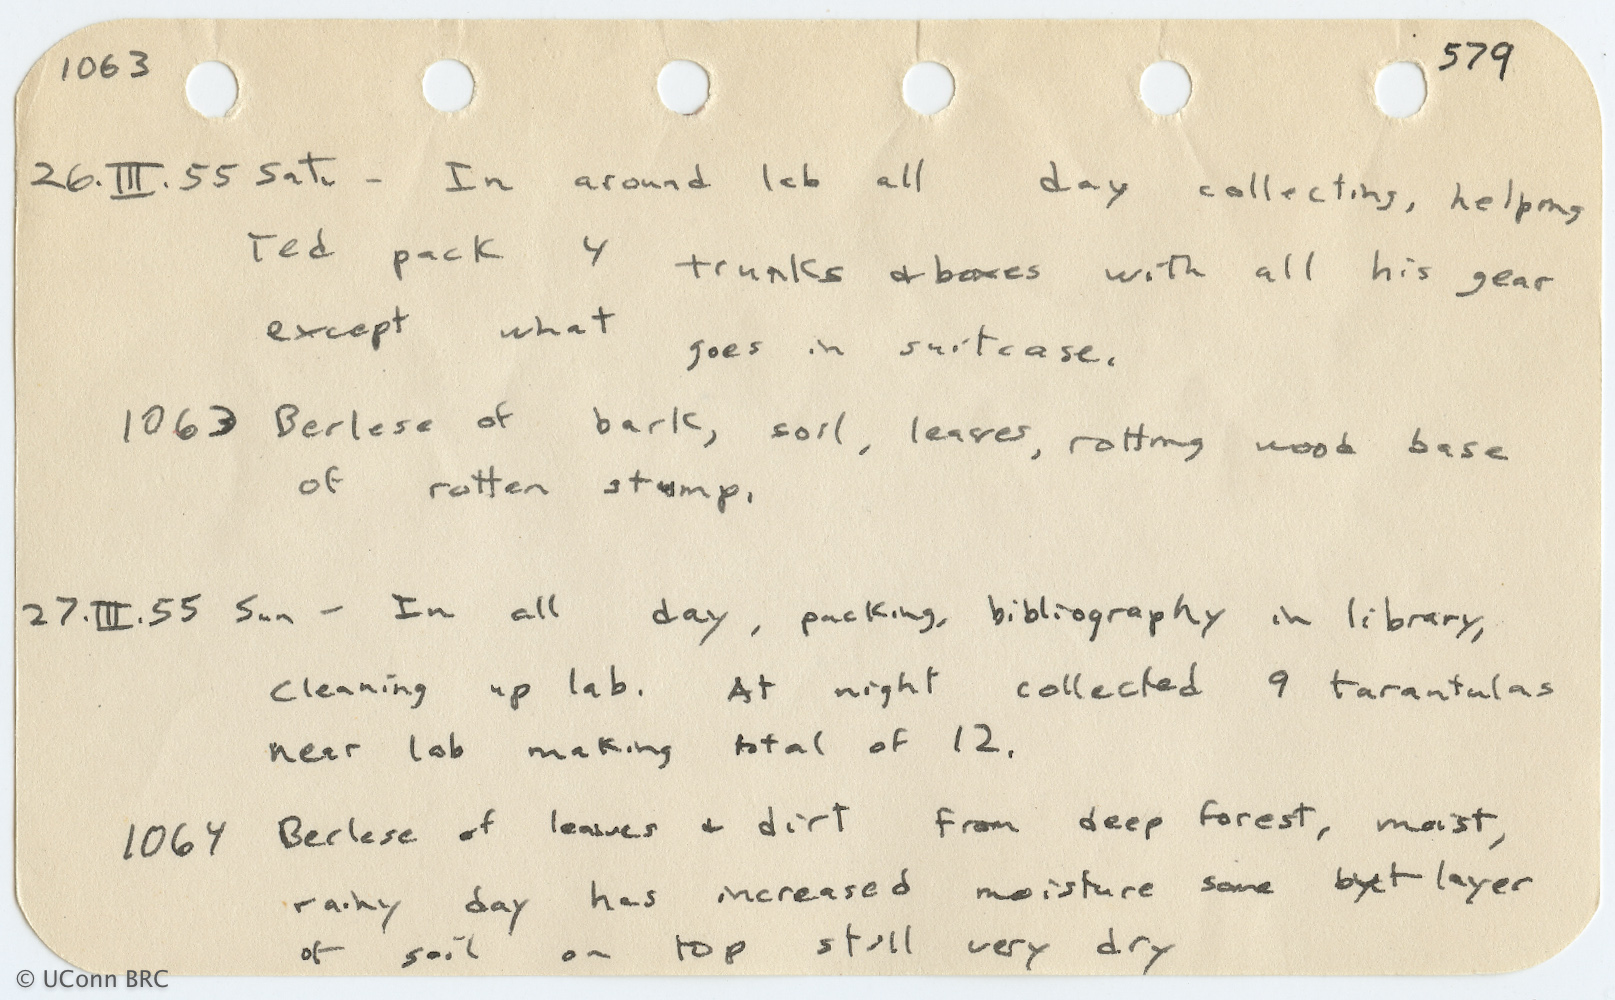 1063 579
26.III.55 Sat. - In around lab all day collecting, helping
Ted pack 4 trunks & boxes with all his gear
except what goes in suitcase.
1063 Berlese of bark, soil, leaves, rotting wood base
of rotten stump.
27.III.55 Sun - In all day, packing, bibliography in library,
cleaning up lab. At night collected 9 tarantulas
near lab making total of 12.
1064 Berlese of leaves & dirt from deep forest, moist,
rainy day has increased moisture some but layer
of soil on top still very dry
© UConn BRC